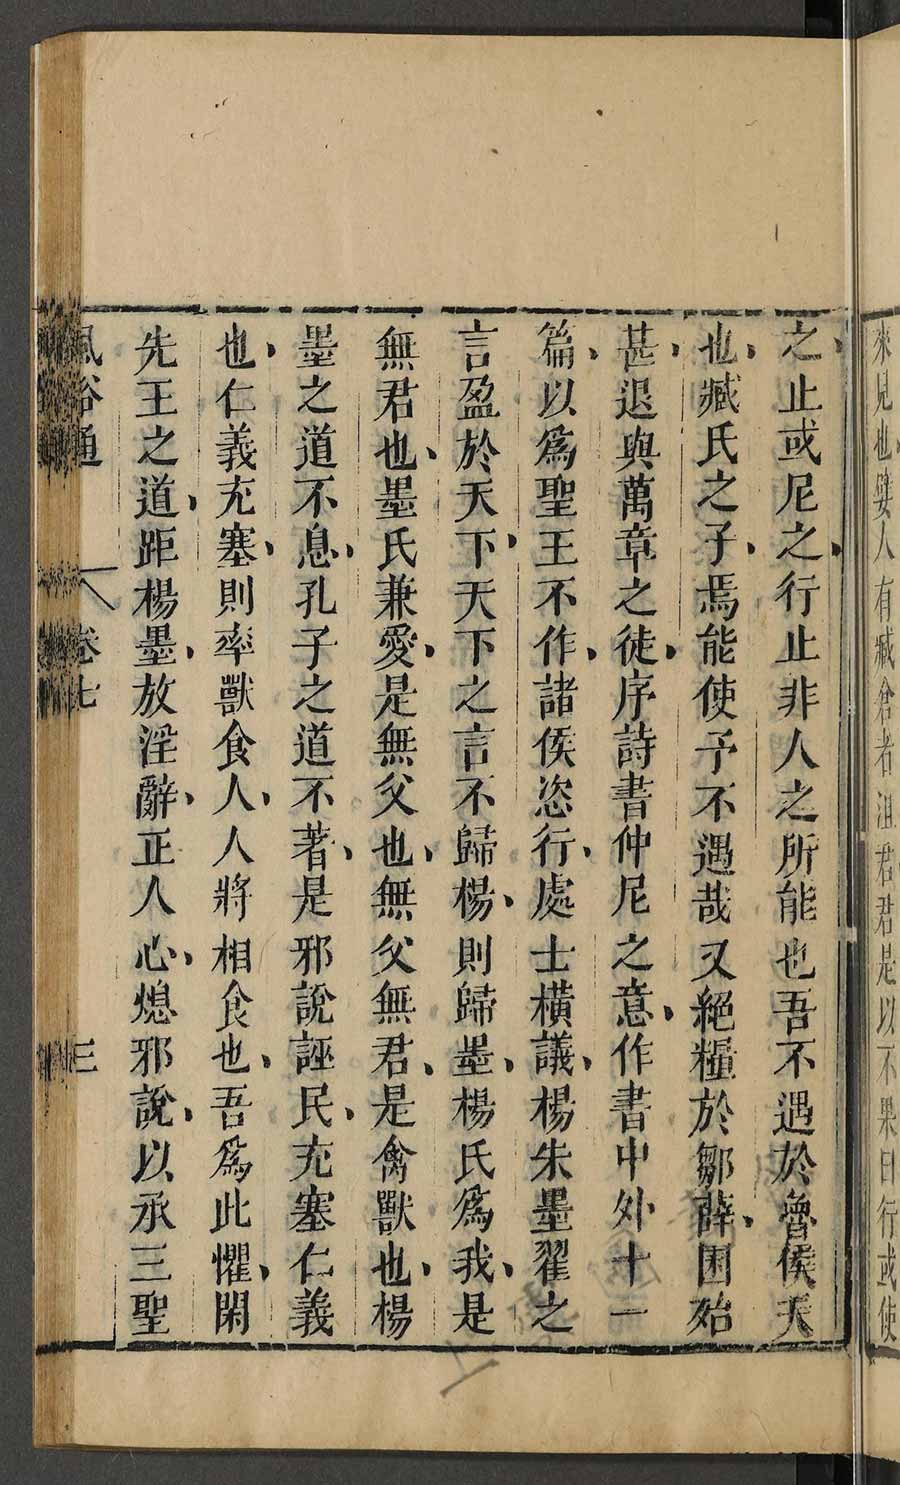 來見也嬖人有臧倉者沮君君是以不果曰行或使
之止或尼之行止非人之所能也吾不遇於魯侯天
也臧氏之子焉能使予不遇哉又絕糧於鄒薛困殆
甚退與萬章之徒序詩書仲尼之意作書中外十一
篇以爲聖王不作諸侯恣行處士橫議楊朱墨翟之
言盈於天下天下之言不歸楊則歸墨楊氏爲我是
無君也墨氏兼愛是無父也無父無君是禽獸也楊
墨之道不息孔子之道不著是邪說誣民充塞仁義
也仁義充塞則率獸食人人將相食也吾爲此懼閑
先王之道距楊墨放淫辭正人心熄邪說以承三聖
風俗通 卷七 三